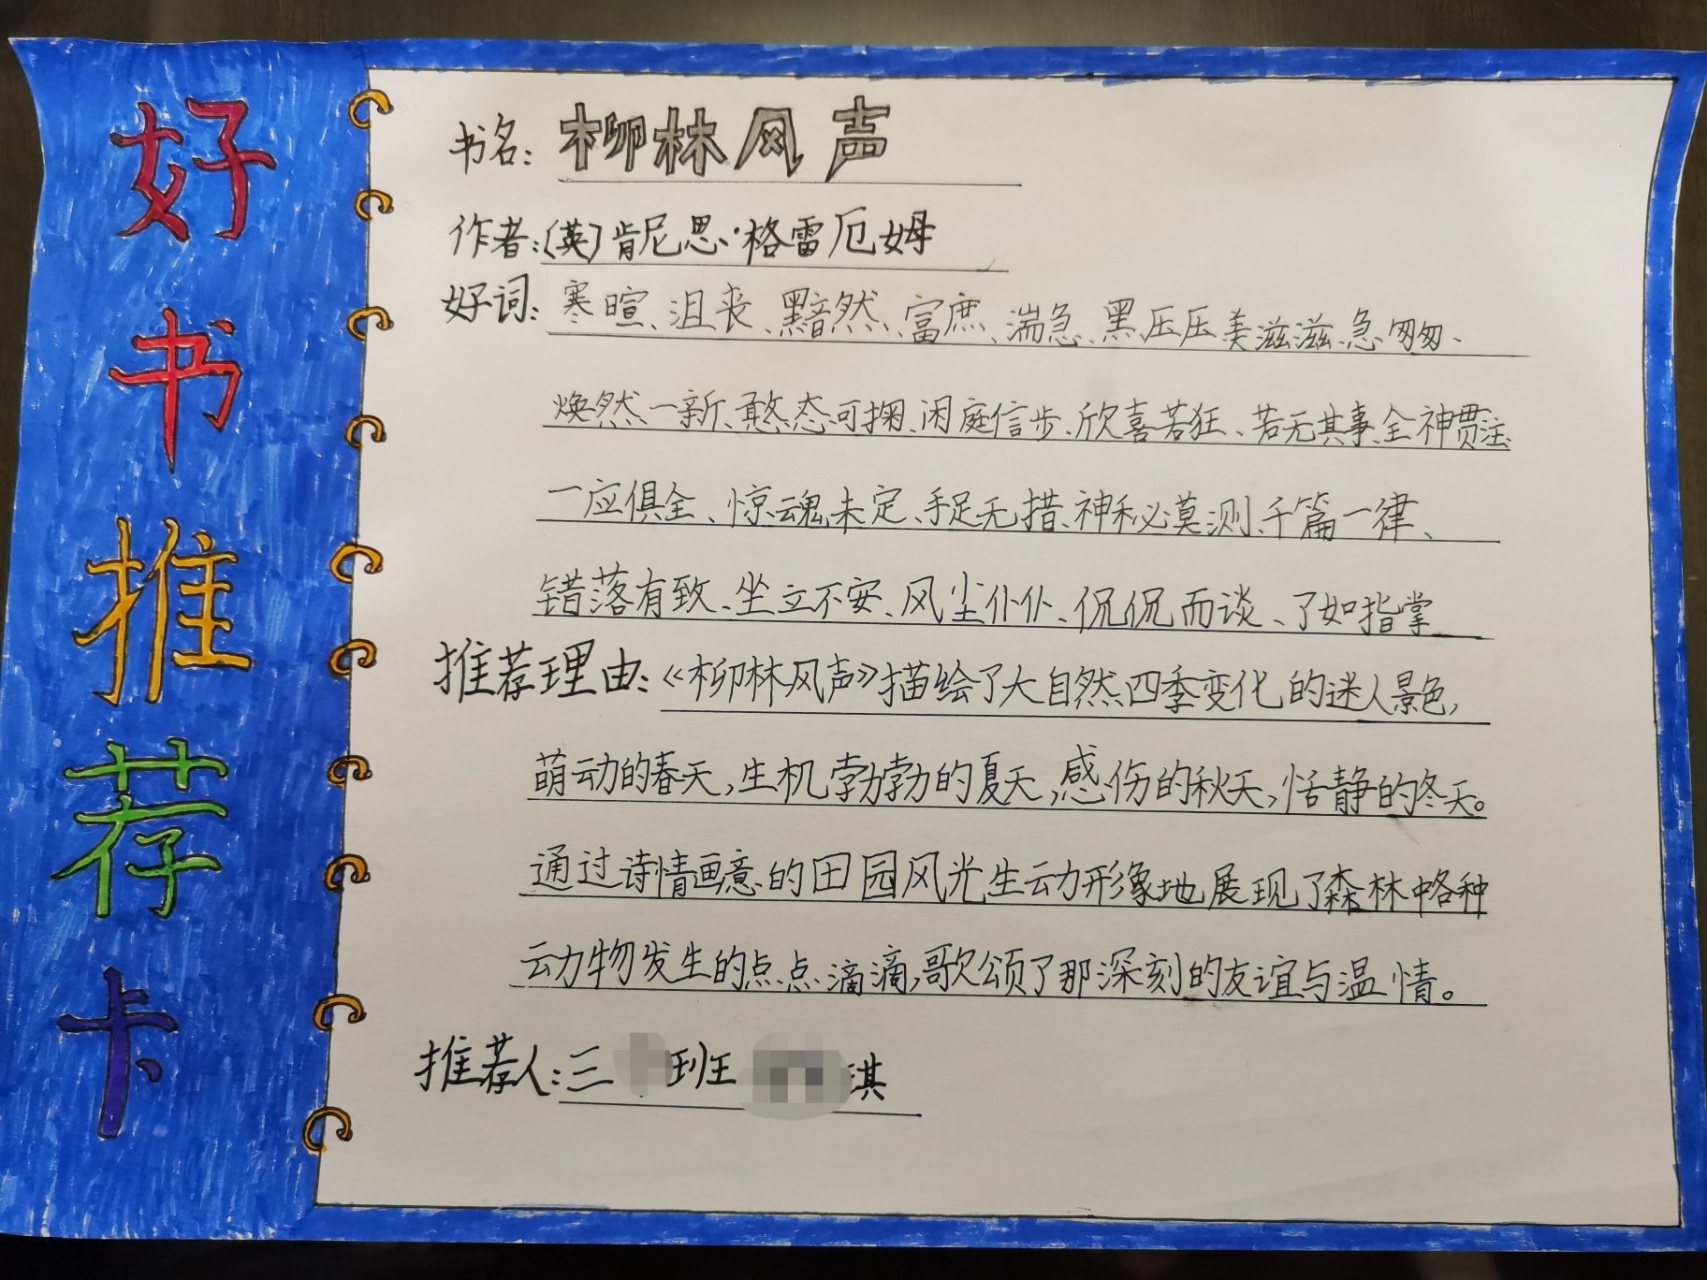 好书推荐卡
书名：柳林风声
作者：(英)肯尼思·格雷厄姆
好词：寒暄、沮丧、黯然、富庶、湍急、黑压压、美滋滋、急匆匆、
焕然一新、憨态可掬、闲庭信步、欣喜若狂、若无其事、全神贯注
一应俱全、惊魂未定、手足无措、神秘莫测、千篇一律、
错落有致、坐立不安、风尘仆仆、侃侃而谈、了如指掌
推荐理由：《柳林风声》描绘了大自然四季变化的迷人景色，
萌动的春天，生机勃勃的夏天，感伤的秋天，恬静的冬天。
通过诗情画意的田园风光生动形象地展现了森林中各种
动物发生的点点滴滴，歌颂了那深刻的友谊与温情。
推荐人：三 班 琪